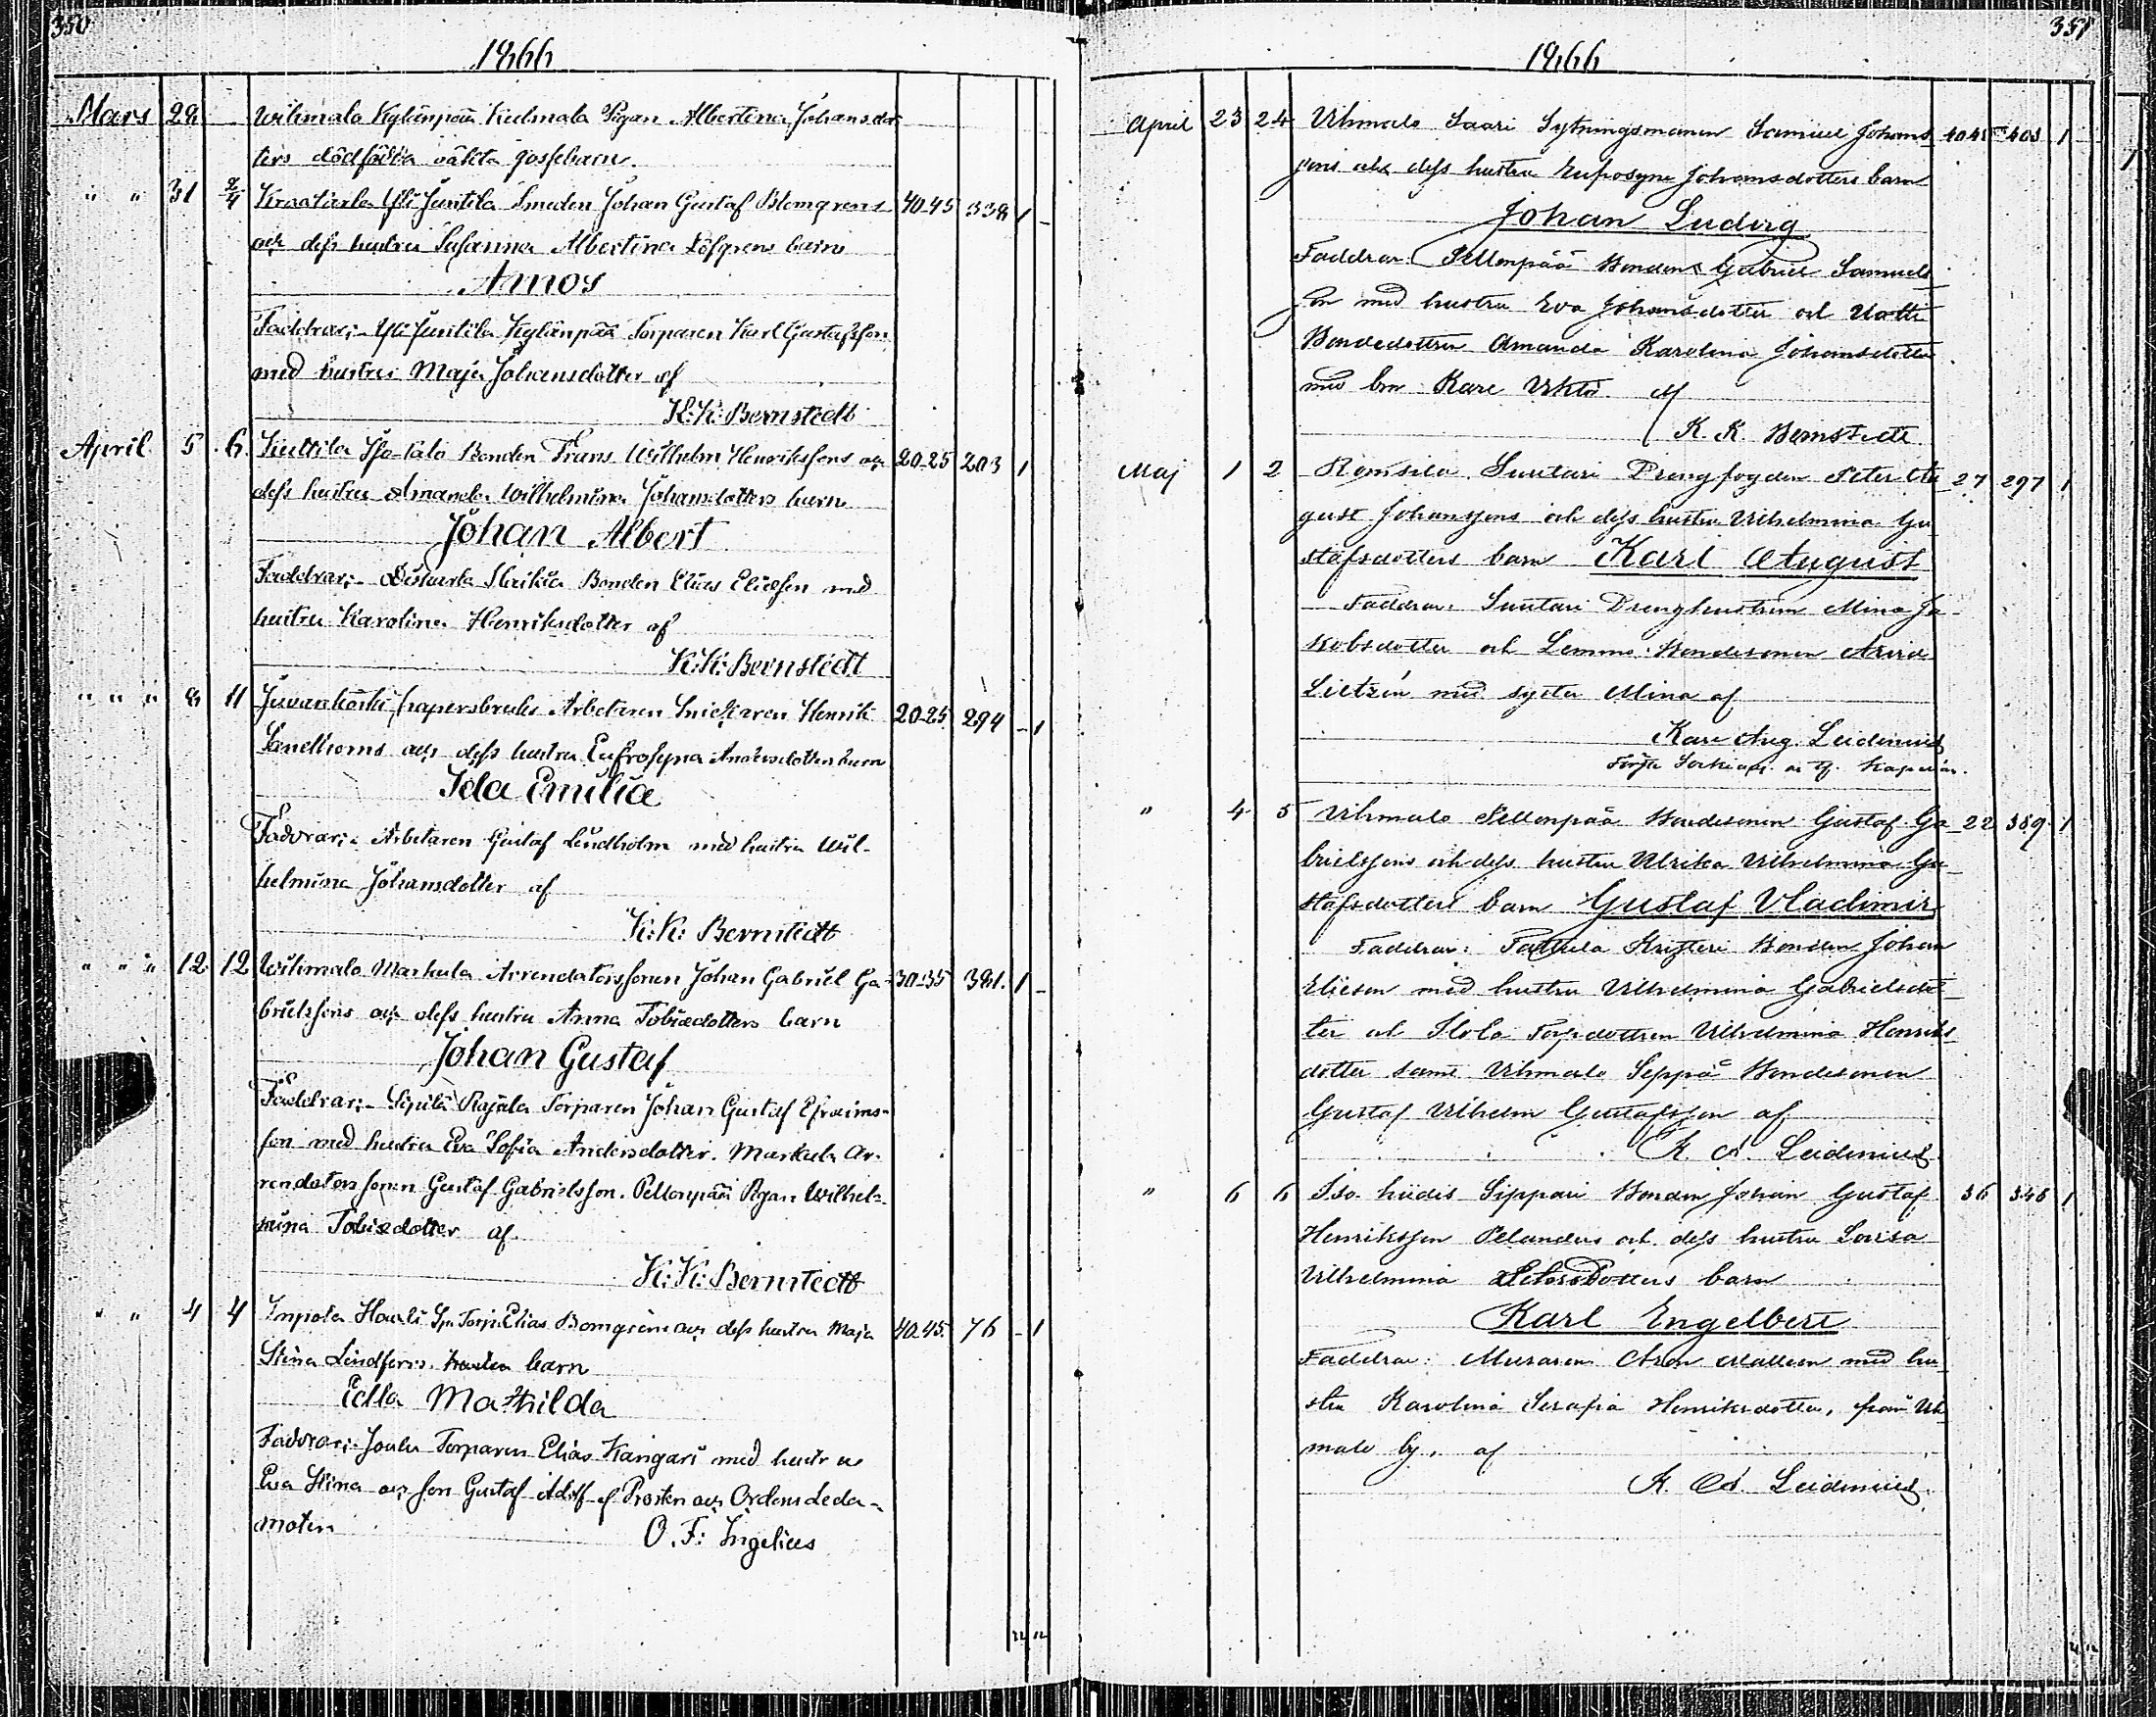 350
1866
Mars 28 Wilmala Kylänpää Kulmala Pigan Albertina Johansdot
ters dödfödda oäkta gossebarn.
" " 31 2/4 Kraatarla Yli Juntila Smeden Johan Gustaf Blomqvens 40-45 338 1 -
och dess hustru Susanna Albertina Löfgrens barn
Amos
Faddrar:- Yli Juntila Kylänpää Torparen Karl Gustafsson
med hustru Maja Johansdotter af
K: K: Bernstedt
April 5 6. Kuttila Iso-talo Bonden Frans Wilhelm Henrikssons och 20-25 203 1
dess hustru Amanda Wilhelmina Johansdotters barn
Johan Albert
Faddrar:- Bonden Elias Eliasson med
hustru Karolina Henriksdotter af
K: K: Bernstedt
" " " 8 11 Juvankoski pappersbruks Arbetaren Snickaren Henrik 20-25 294 - 1
och dess hustru Eufrosyna Andersdotters barn
Ida Emilia
Faddrar:- Arbetaren Gustaf Lindholm med hustru Wil-
helmina Johansdotter af
K: K: Bernstedt
" " " 12 12 Wilmala Markula Arrendatorssonen Johan Gabriel Ga- 30-35 381. 1 -
brielssons och dess hustru Anna Tobiædotters barn
Johan Gustaf
Faddrar:- Sipilä Rajala Torparen Johan Gustaf Efraims-
son med hustru Eva Sofia Andersdotter. Markula Ar-
rendatorssonen Gustaf Gabrielsson. Pellonpää Pigan Wilhel-
mina Tobiædotter af.
K: K: Bernstedt
" " 4 4 Inpola Elias Bomgren och dess hustru Maja 40-45. 76 - 1
Stina Lindfors barn
Edla Mathilda
Faddrar:- Joulu Torparen Elias Kangari med hustru
Eva Stina och son Gustaf Adolf af Prosten och Ordens Leda-
moten O. F: Ingelius
351
1866
April 23 24 Vilmala Saari Sytningsmannen Samuel Johans 40-45 408 1
sons och dess hustru Eufrosyne Johansdotters barn
Johan Ludvig
Faddrar. Pellonpää Bonden Gabriel Samuels
son med hustru Eva Johansdotter och Uotti
Bondedottren Amanda Karolina Johansdotter
med bror Karl Viktor. af
K. K. Bernstedt.
Maj 1 2 Suutari Drengfogden Peter Au 27 297 1
gust Johanssons och dess hustru Vilhelmina Gu
stafsdotters barn Karl August
Faddrar: Suutari Drenghustrun Mina Ja-
kobsdotter och Lemmo Bondesonen Arvid
Lietzén med syster Mina af
Karl Aug. Leidenius
" 4 5 Vilmala Pellonpää Bondesonen Gustaf Ga 22 389. 1
brielssons och dess hustru Ulrika Vilhelmina Gu
stafsdotters barn Gustaf Vladimir
Faddrar: Bonden Johan
Eliesson med hustru Vilhelmina Gabrielsdot
ter och Vilhelmina Henriks
dotter samt Vilmala Seppä Bondesonen
Gustaf Vilhelm Gustafsson af
K. A. Leidenius.
" 6 6 Iso-hiidis Sippari Bonden Johan Gustaf 36 346 1
Henriksson Pelanders och dess hustru Lovisa
Vilhelmina barn
Karl Engelbert
Faddrar: Muraren Aron Mattsson med hu
stru Karolina Serafia Henriksdotter, från Vil
mala by. af
K. A. Leidenius.